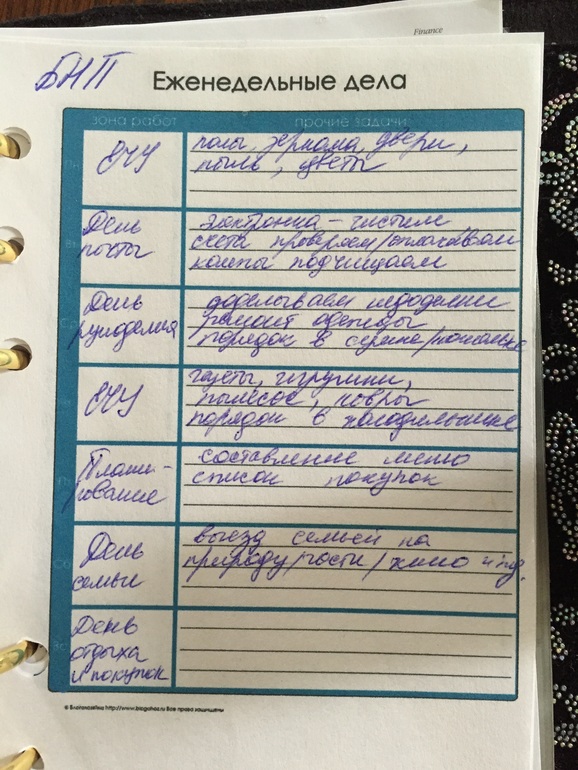 Finance
БНП
Еженедельные дела
зона работ прочие задачи
ЕЧУ
полы, зеркала, двери,
пыль, цветы
День
почты
электронка – чистим
счета проверяем/оплачиваем
компы подчищаем
День
рукоделия
доделываем недоделки
ремонт одежды
порядок в сумке/кошельке
ЕЧУ
газеты, игрушки,
пылесос, ковры
порядок в холодильнике
Плани-
рование
составление меню
список покупок
Сб
День
семьи
выезд семьей на
природу/гости/кино и пр.
Вс
День
отдыха
и покупок
© Благохозяйка http://www.blagohoz.ru Все права защищены